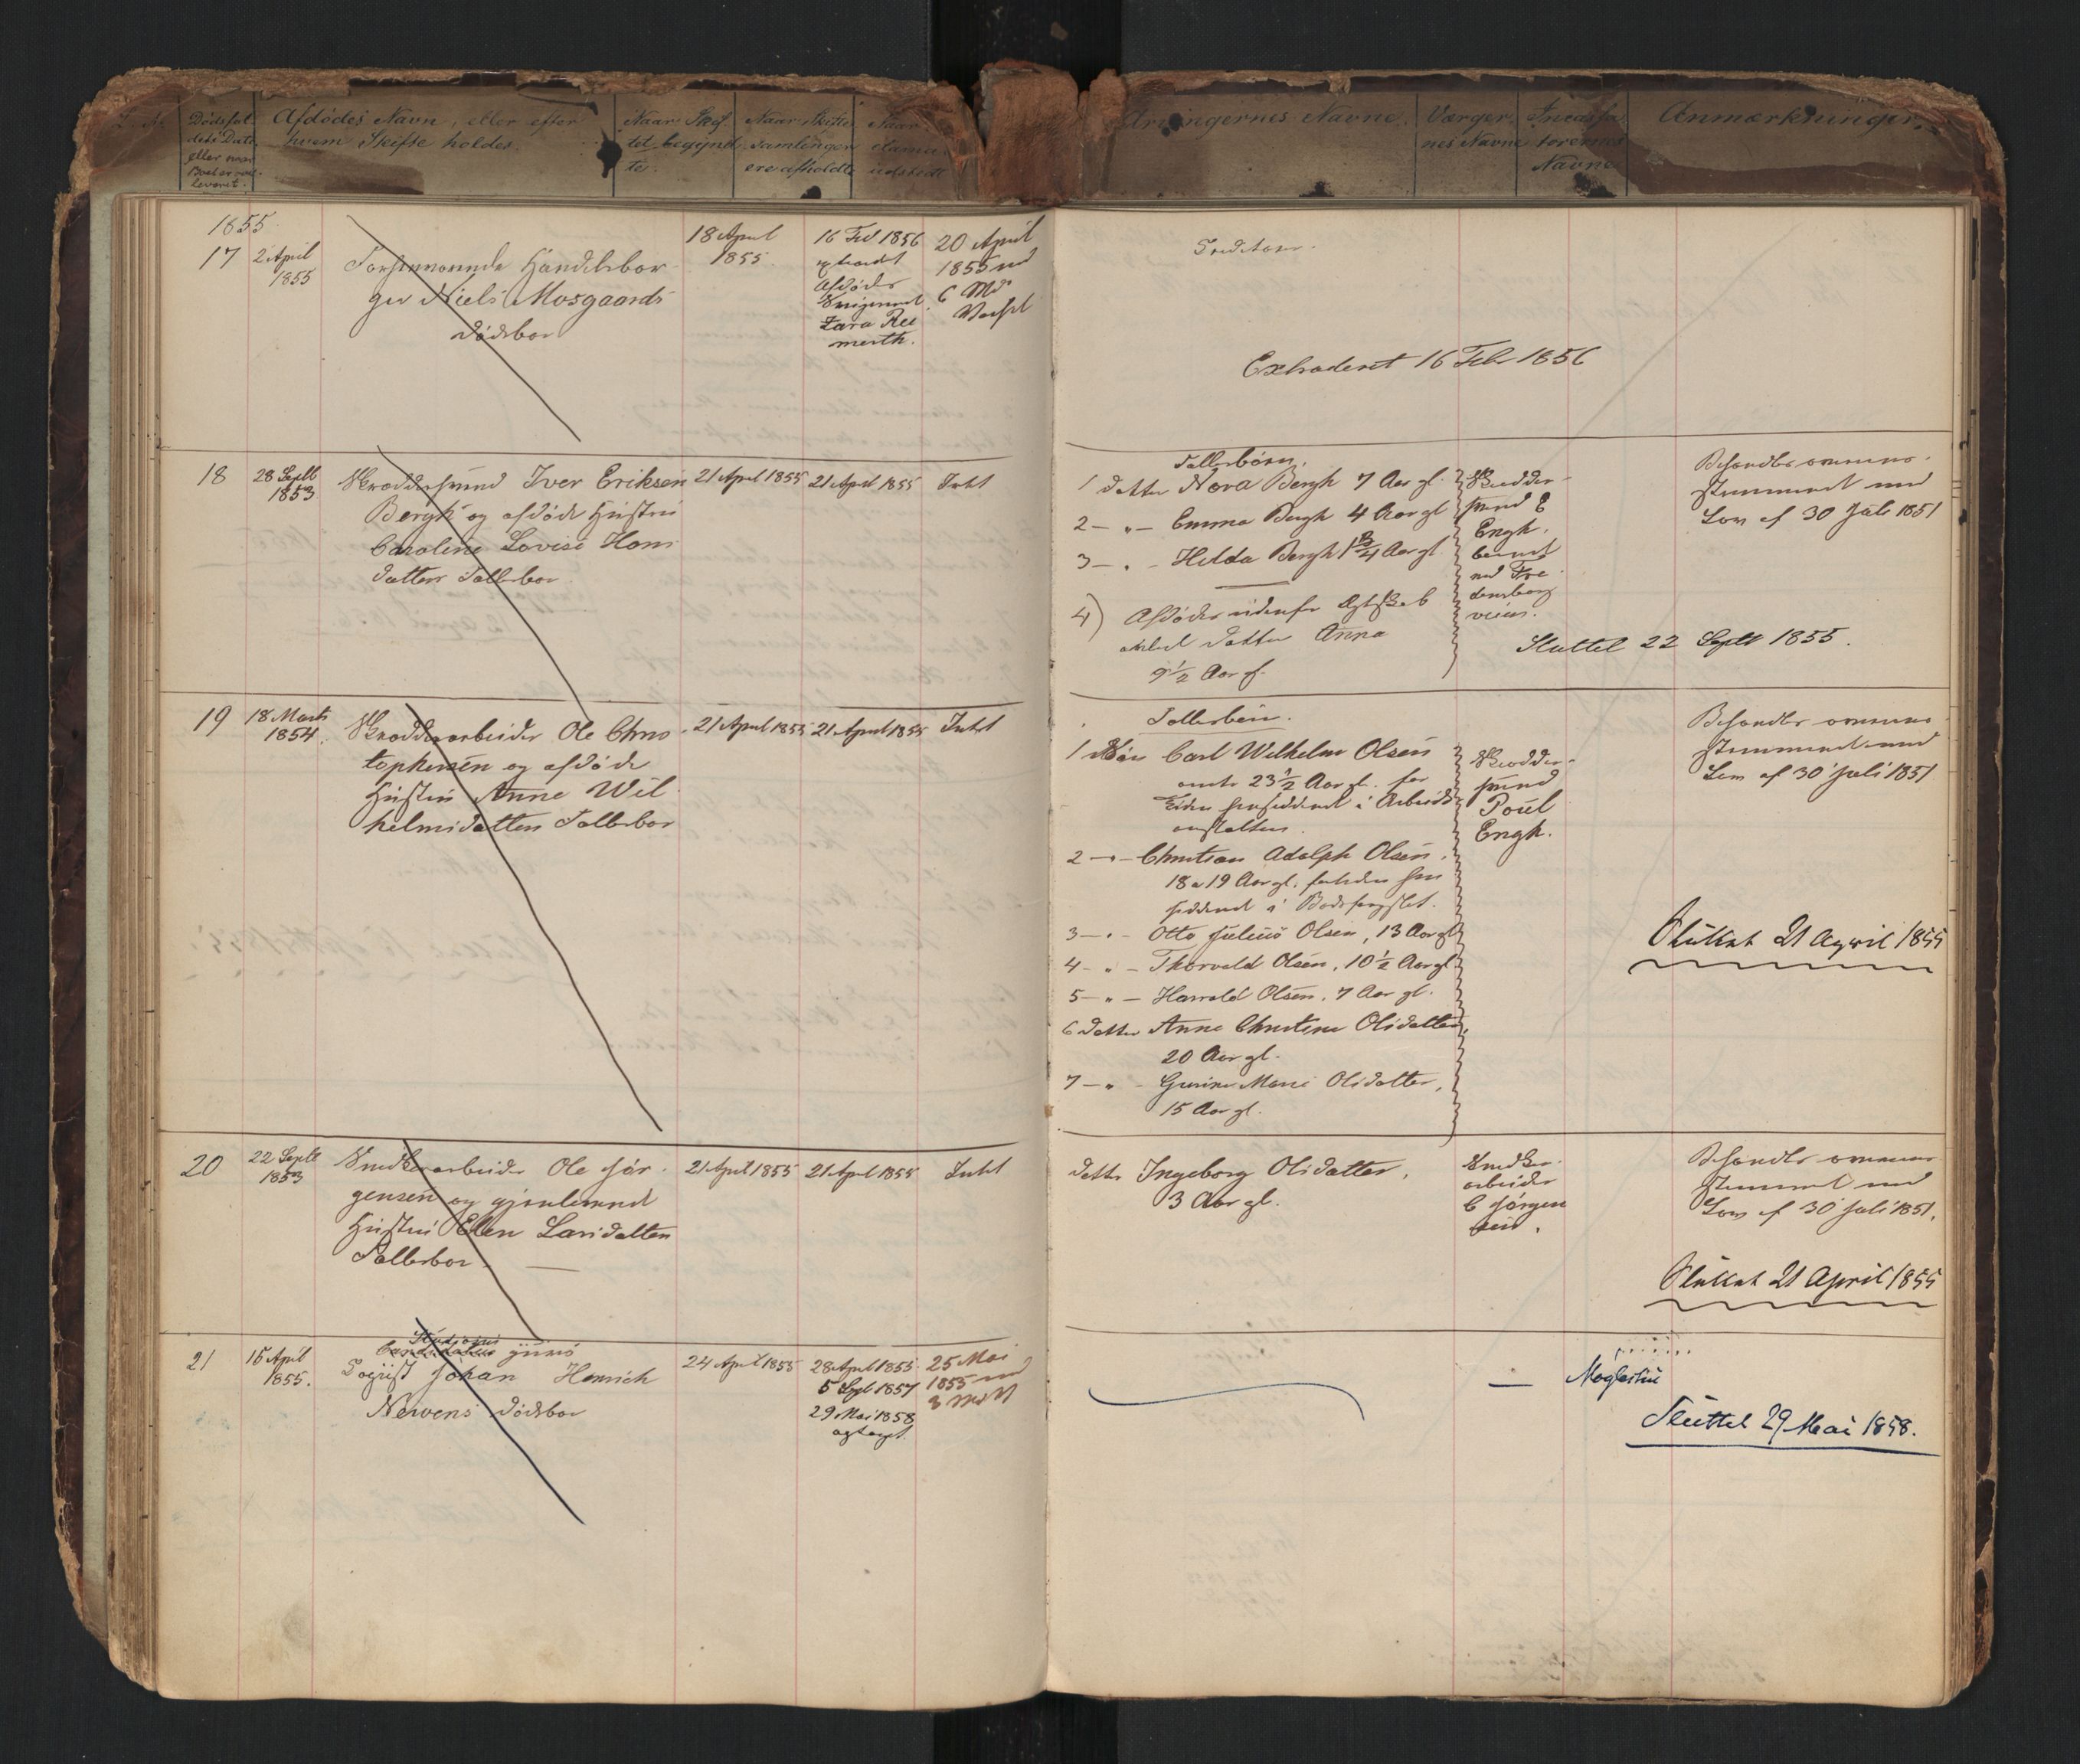 Afdødes Navn, eller efter
hvem Skifte holdes.
Naar Skif-
tet begynd-
te.
Naar Skifte
samlingen
ere afholdte
Naar
udstedt
Arvingernes Navne.
Værger-
nes Navne
Incassa-
torernes
Navne
Anmærkninger.
1855
17
2 April
1855
Handelsbor-
ger Niels Mosgaards
Dødsbo
18 April
1855
16 Feb 1856
Afdødes
20 April
1855 med
6 Mds
Varsel
Creditorer.
Extraderet 16 Febr 1856
18
28 Septb
1853
Skræddersvend Iver Eriksen
Bergh og afdøde Hustru
Caroline Lovise Hans
datters Fællesbo
21 April 1855
21 April 1855
Intet
Fællesbørn.
1 Datter Nora Bergh 7 Aar gl.
2 — " — Emma Bergh 4 Aar gl
3 — " — Hilda Bergh 1 3/4 Aar gl.
4) Afdødes udenfor Ægteskab
avlede Datter Anna
9 1/2 Aar gl.
Skrædder-
svend E
Engh.
Behandles overens-
stemmende med
Lov af 30 Juli 1851
Sluttet 22 Septb 1855.
19
18 Marts
1854.
Skrædderarbeider Ole Chris-
tophersen og afdøde
Hustru Anne Wil-
helmsdatters Fællesbo
21 April 1855
21 April 1855
Intet
Fællesbørn.
1 Søn Carl Wilhelm Olsen
omtr 23 1/2 Aar gl. for
Tiden hensiddende i Arbeids
anstalten.
2 — " — Christian Adolph Olsen,
18 a 19 Aar gl. fortiden hen
siddende i Bodsfængslet.
3 — " — Otto Julius Olsen, 13 Aar gl
4 — " — Thorvald Olsen, 10 1/2 Aar gl
5 — " — Harald Olsen, 7 Aar gl.
6 Datter Anne Christine Olsdatter,
20 Aar gl.
7 — " — Gurine Marie Olsdatter,
15 Aar gl.
Skrædder-
svend
Poul
Engh.
Behandles overens-
stemmende med
Lov af 30 Juli 1851
Sluttet 21 April 1855
20
22 Septb
1853
Snedkerarbeider Ole Jør-
gensen og gjenlevende
Hustru Elen Larsdatters
Fællesbo. —
21 April 1855
21 April 1855
Intet
Datter Ingeborg Olsdatter,
3 Aar gl.
Snedker-
arbeider
C Jørgen
sen.
Behandles overens-
stemmende med
Lov af 30 Juli 1851.
Sluttet 21 April 1855
21
15 April
1855.
Studiosus
juris
Johan Henrich
Nervens Dødsbo
24 April 1855
28 April 1855
5 Sept 1857
29 Mai 1858
optaget.
25 Mai
1855 med
—
Møglestue
Sluttet 29 Mai 1858.